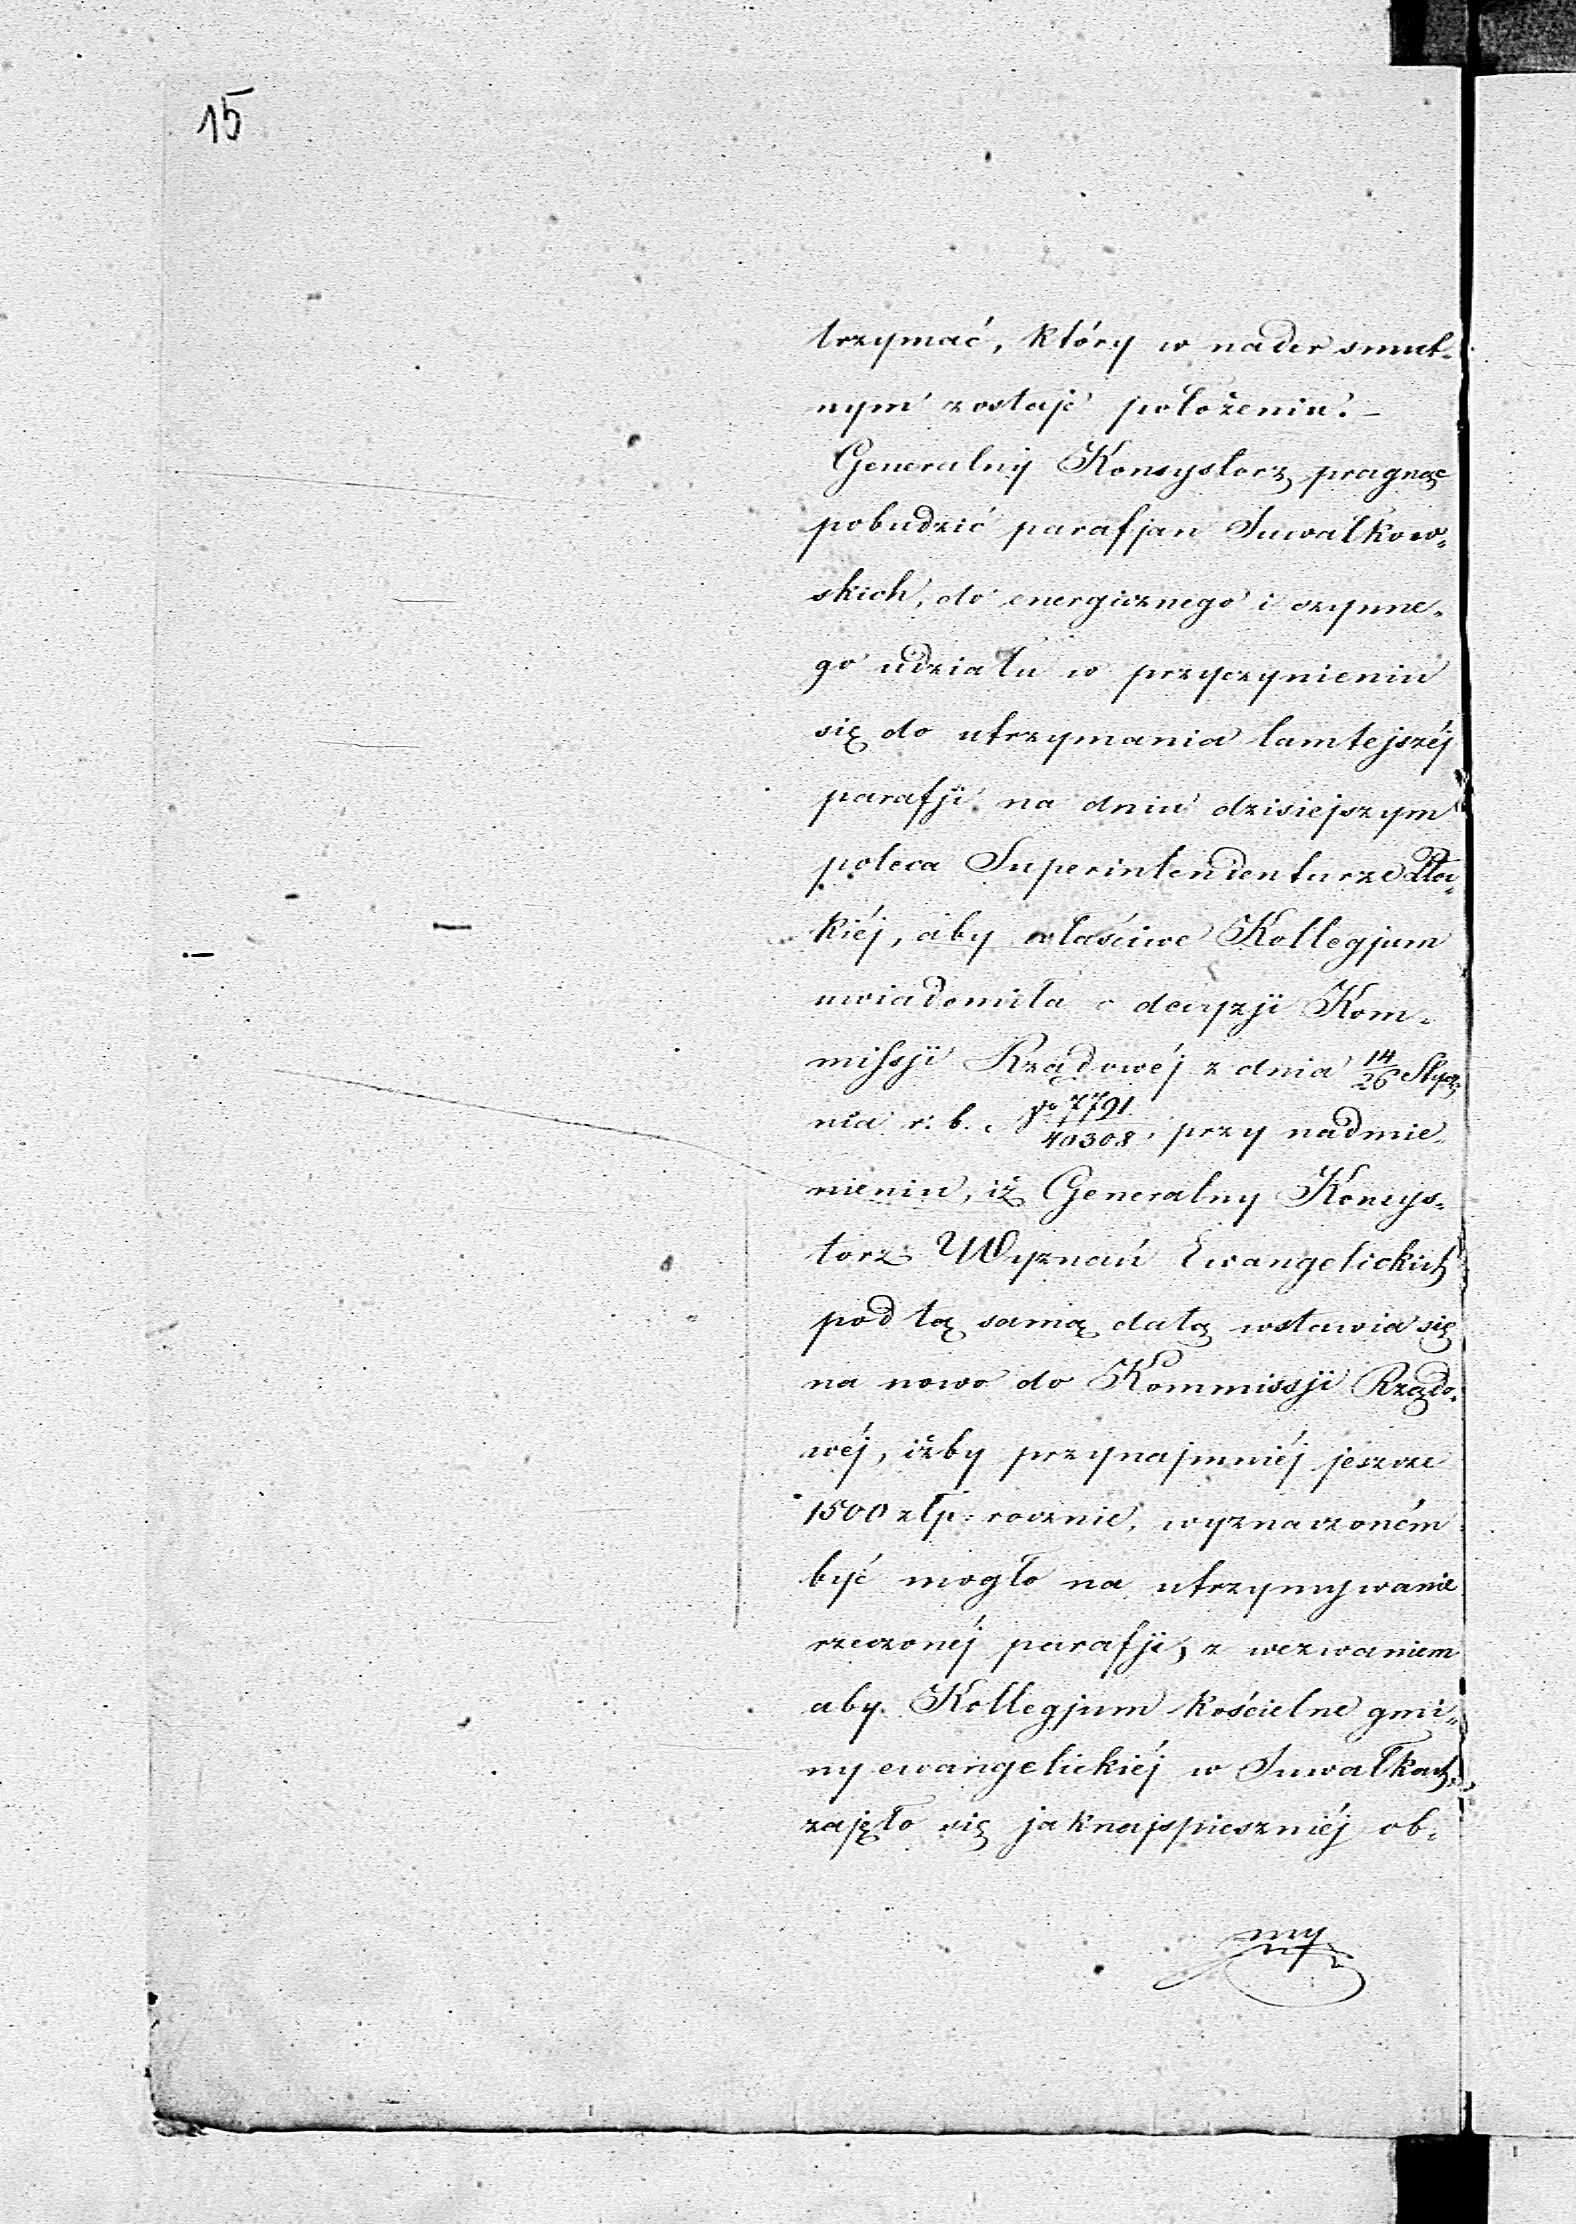 15
trzymać, który w nader smut=
nym zostaje położeniu. –
Generalny Konsystorz, pragnąc
pobudzić parafjan Suwałkow=
skich, do energicznego i czynne=
go udziału w przyczynieniu
się do utrzymania tamtejszéj
parafji, na dniu dzisiejszym
poleca Superintendenturze Płoc=
kiéj, aby właściwe Kollegjum
uwiadomiła o decyzji Kom=
missji Rządowéj z dnia 14/26 Stycz=
nia r. b. No 7791/40308, przy nadmie=
nieniu, iż Generalny Konsys=
torz Wyznań Ewangelickich
pod tą samą datą wstawia się
na nowo do Kommissji Rządo=
wéj, iżby przynajmniéj jeszcze
1500 złp: rocznie, wyznaczoném
być mogło na utrzymywanie
rzeczonéj parafji, z wezwaniem
aby Kollegjum kościelne gmi=
ny ewangelickiéj w Suwałkach,
zajęło się jaknajspieszniéj ob=
my